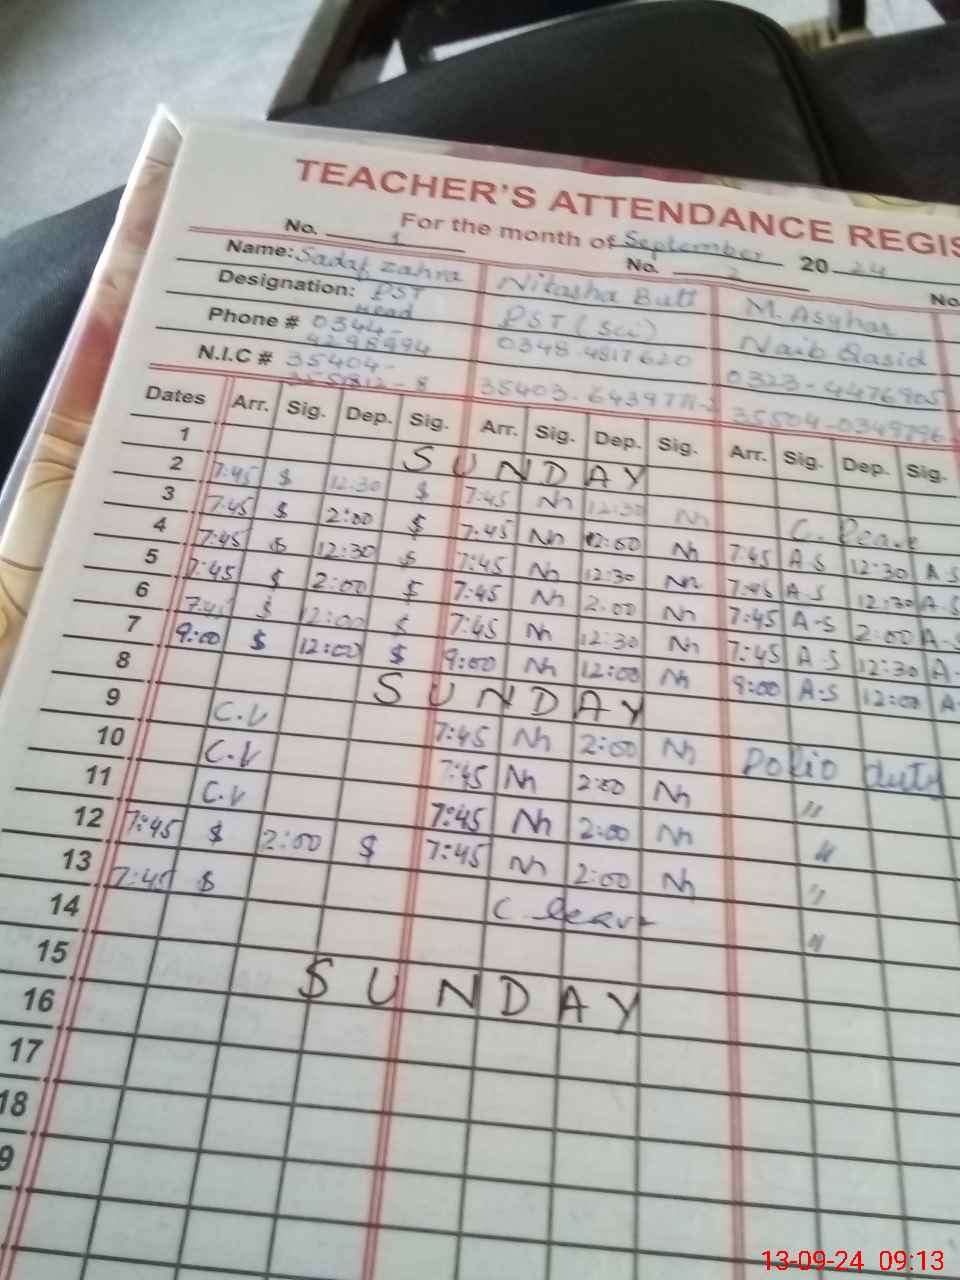 TEACHER'S ATTENDANCE REGIS
For the month of September 2024
No. 1 No. 2 No.
Name: Sadaf Zahra Nitasha Butt M. Asghar
Designation: PST Head PST (Sci) Naib Qasid
Phone # 0344- 4298994 0348-4817620 0323-4476905
N.I.C # 35404- 35403-6439771- 35504-0349796-
Dates Arr. Sig. Dep. Sig. Arr. Sig. Dep. Sig. Arr. Sig. Dep. Sig.
1 SUNDAY
2 7:45 $ 12:30 $ 7:45 Nn 12:30 Nn C. Leave
3 7:45 $ 2:00 $ 7:45 Nn 2:00 Nn 7:45 A-S 12:30 A-S
4 7:45 $ 12:30 $ 7:45 Nn 12:30 Nn 7:45 A-S 12:30 A-S
5 7:45 $ 2:00 $ 7:45 Nn 2:00 Nn 7:45 A-S 2:00 A-S
6 7:45 $ 12:00 $ 7:45 Nn 12:30 Nn 7:45 A-S 12:30 A-
7 9:00 $ 12:00 $ 9:00 Nn 12:00 Nn 9:00 A-S 12:00 A-
8 SUNDAY
9 C.V 7:45 Nn 2:00 Nn Polio duty
10 C.V 7:45 Nn 2:00 Nn "
11 C.V 7:45 Nn 2:00 Nn "
12 7:45 $ 2:00 $ 7:45 Nn 2:00 Nn "
13 7:45 $ C. leave "
14
15 SUNDAY
16
17
18
9
13-09-24 09:13